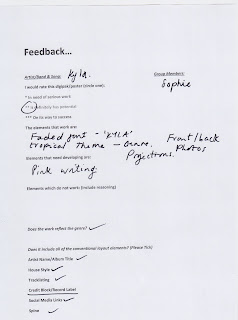 Feedback...
Artist/Band & Song: Kyla.
Group Members:
Sophie
I would rate this digipak/poster (circle one):
* In need of serious work
** Definitely has potential
*** On its way to success
The elements that work are:
Faded font - 'KYLA' Front/back
tropical theme - Genre. Photos
Projections.
Elements that need developing are:
Pink writing.
Elements which do not work (include reasoning)
Does the work reflect the genre? ✓
Does it include all of the conventional layout elements? (Please Tick)
Artist Name/Album Title ✓
House Style ✓
Tracklisting ✓
Credit Block/Record Label
Social Media Links ✓
Spine ✓